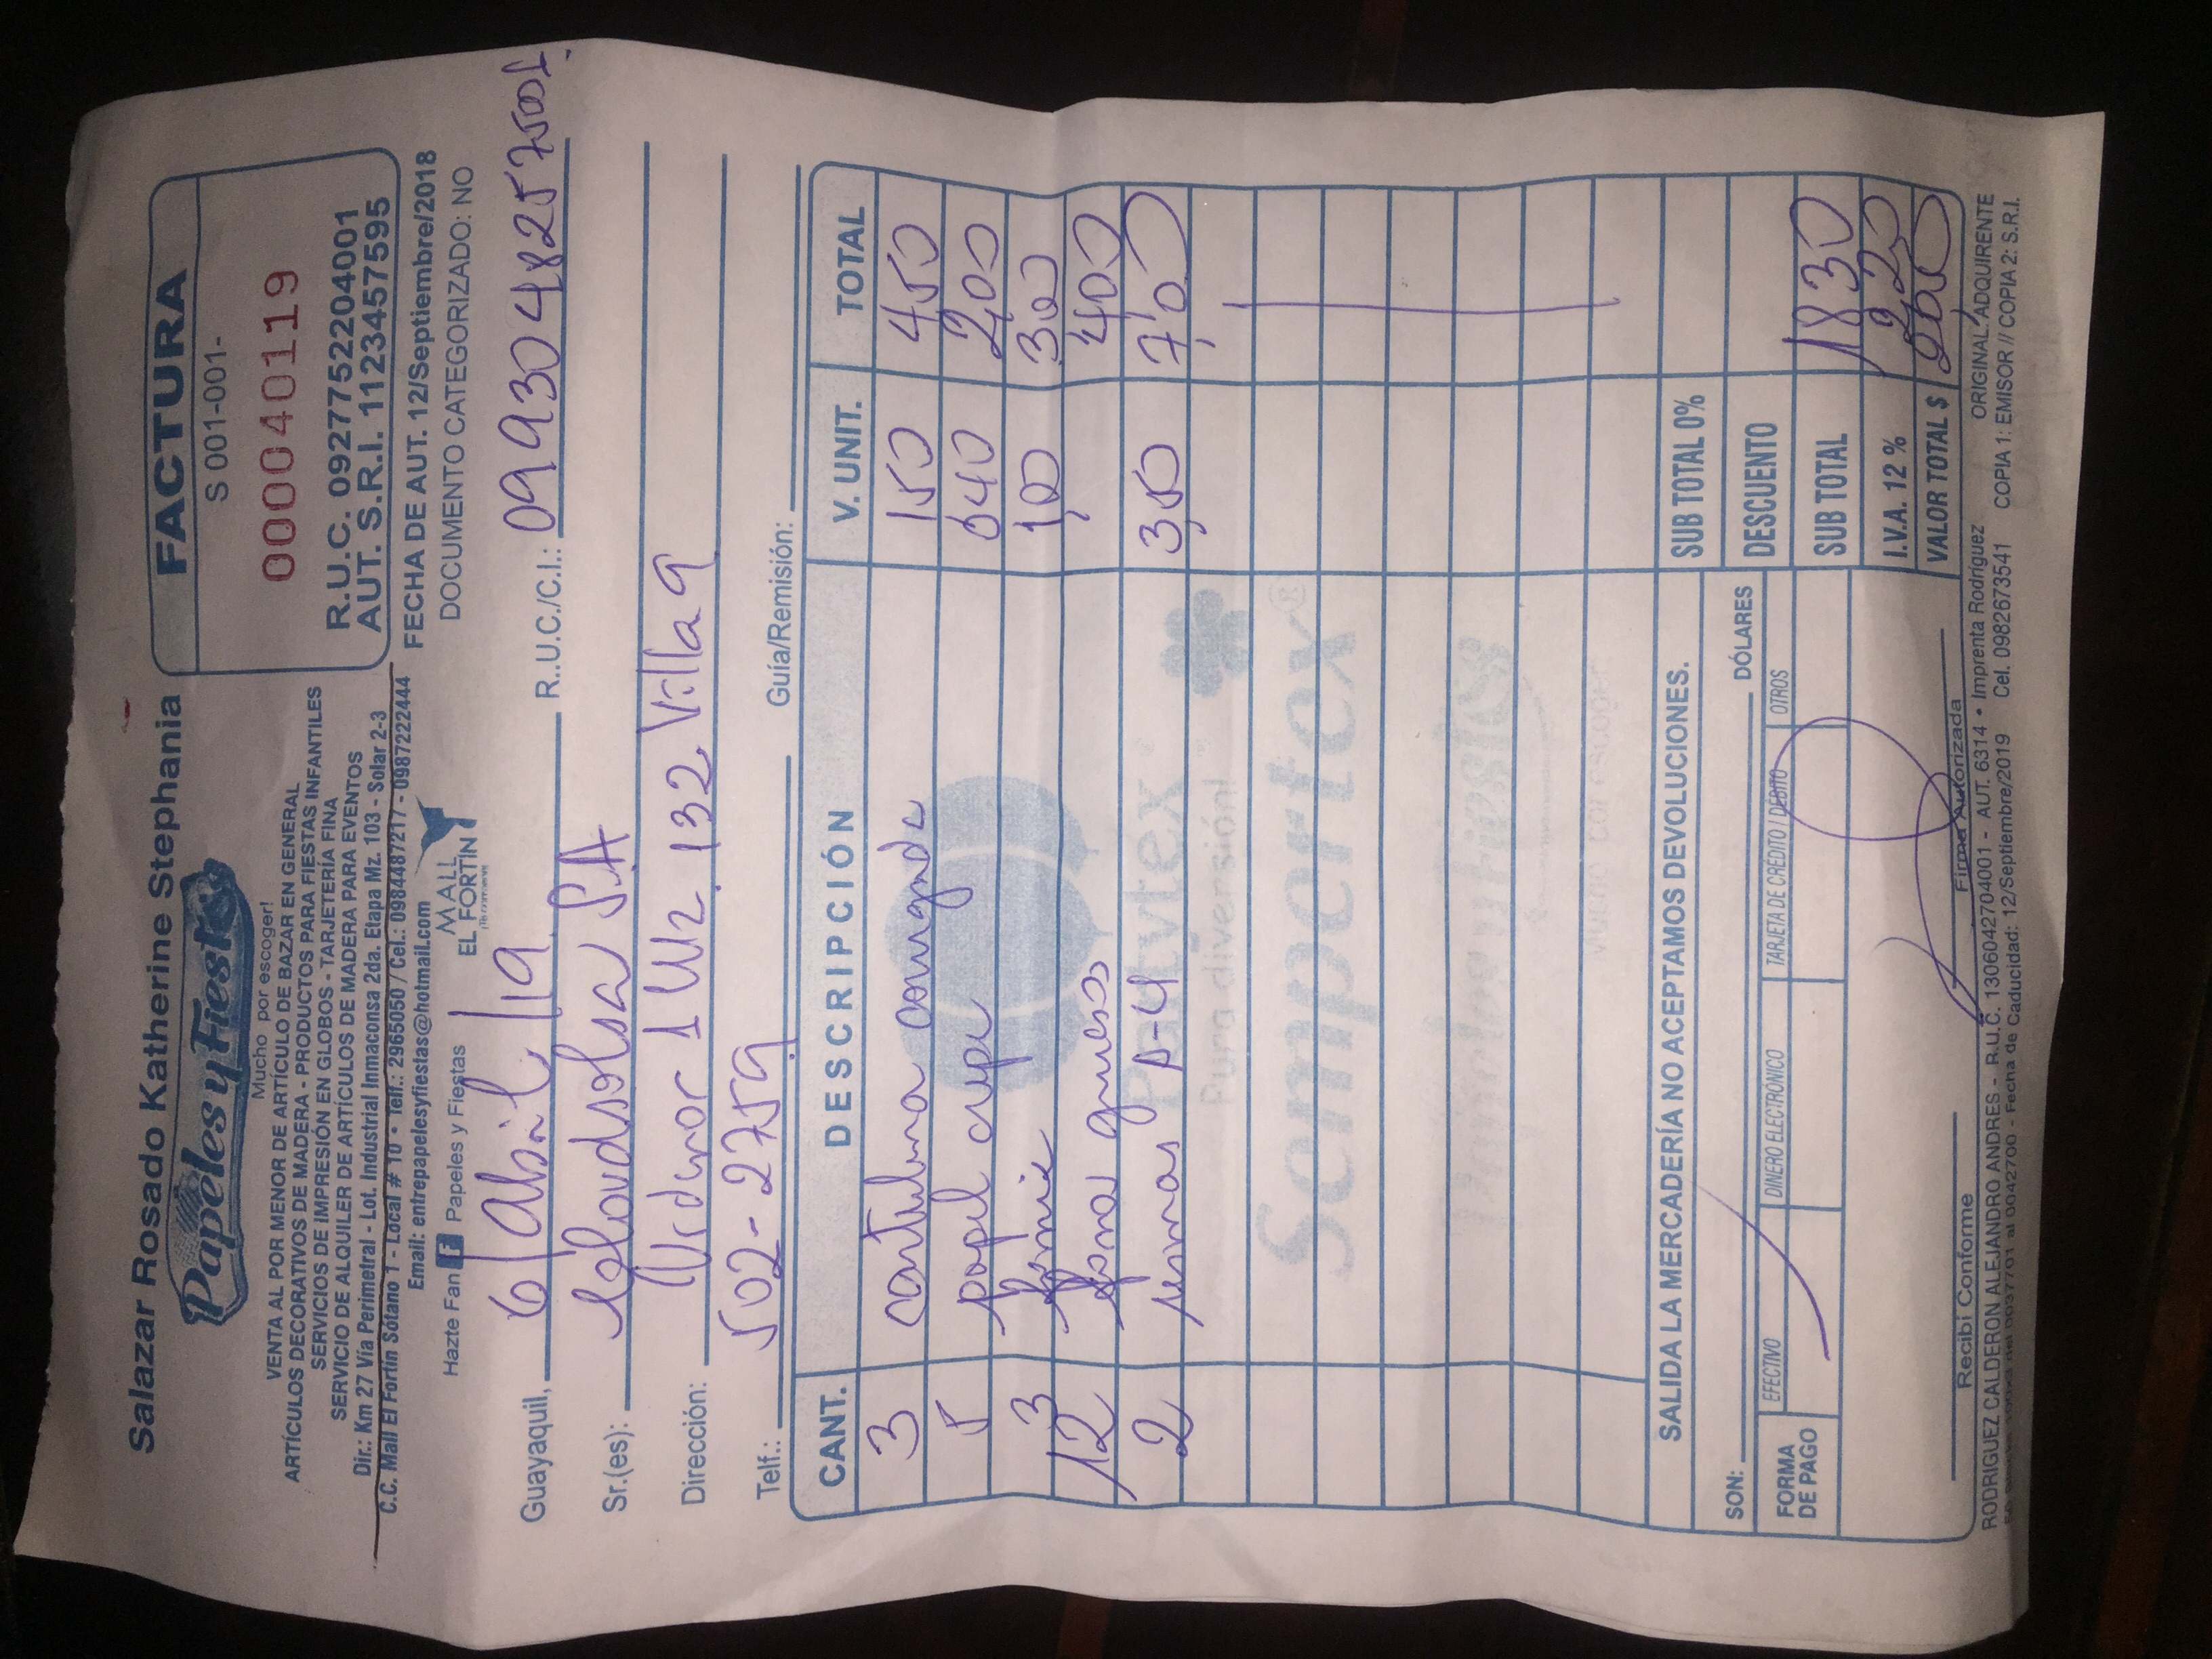 Salazar Rosado Katherine Stephania
Papeles y Fiestas
Mucho por escoger!
VENTA AL POR MENOR DE ARTÍCULO DE BAZAR EN GENERAL
ARTÍCULOS DECORATIVOS DE MADERA - PRODUCTOS PARA FIESTAS INFANTILES
SERVICIOS DE IMPRESIÓN EN GLOBOS - TARJETERÍA FINA
SERVICIO DE ALQUILER DE ARTÍCULOS DE MADERA PARA EVENTOS
Dir.: Km 27 Vía Perimetral - Lot. Industrial Inmaconsa 2da. Etapa Mz. 103 - Solar 2-3
C.C. Mall El Fortín Sótano 1 - Local # 10 • Telf.: 2965050 / Cel.: 0984487217 - 0987222444
Email: entrepapelesyfiestas@hotmail.com
Hazte Fan f Papeles y Fiestas
MALL
EL FORTÍN
FACTURA
S 001-001-
000040119
R.U.C. 0927752204001
AUT. S.R.I. 1123457595
FECHA DE AUT. 12/Septiembre/2018
DOCUMENTO CATEGORIZADO: NO
Guayaquil, 6/Abril/19 R..U.C./C.I.: 0993048257001
Sr.(es): Cloudsolsa S.A
Dirección: Urdenor 1 Mz. 132 Villa 9
Telf.: 502-2759 Guía/Remisión:
CANT. DESCRIPCIÓN V. UNIT. TOTAL
3 cartulina corrugada 150 450
5 papel crepe 040 2,00
3 fomix 1,00 300
12 gruesos 4,00
2 resmas A-4 3,50 7,00
Partytex
Pura diversión!
Sempertex®
Papeles y Fiestas
Mucho por escoger!
SALIDA LA MERCADERÍA NO ACEPTAMOS DEVOLUCIONES.
SON: DÓLARES
FORMA DE PAGO
EFECTIVO DINERO ELECTRÓNICO TARJETA DE CRÉDITO / DÉBITO OTROS
SUB TOTAL 0%
DESCUENTO
SUB TOTAL 1830
I.V.A. 12 % 2,20
VALOR TOTAL $
Recibí Conforme Firma Autorizada
RODRIGUEZ CALDERON ALEJANDRO ANDRES - R.U.C. 1306042704001 - AUT. 6314 • Imprenta Rodríguez ORIGINAL: ADQUIRENTE
100x3 del 0037701 al 0042700 - Fecha de Caducidad: 12/Septiembre/2019 Cel. 0982673541 COPIA 1: EMISOR // COPIA 2: S.R.I.